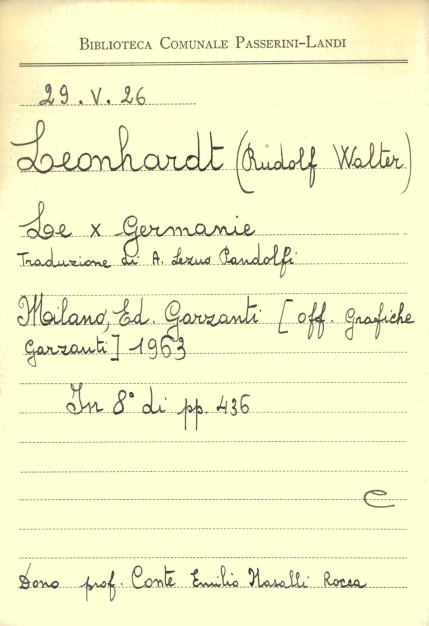 BIBLIOTECA COMUNALE PASSERINI-LANDI
29. V. 26
Leonhardt (Rudolf Walter)
Le x Germanie
Traduzione di A. Lezuo Pandolfi
Milano, Ed. Garzanti [off. Grafiche
Garzanti] 1963
In 8° di pp. 436
C
Dono prof. Conte Emilio Nasalli Rocca